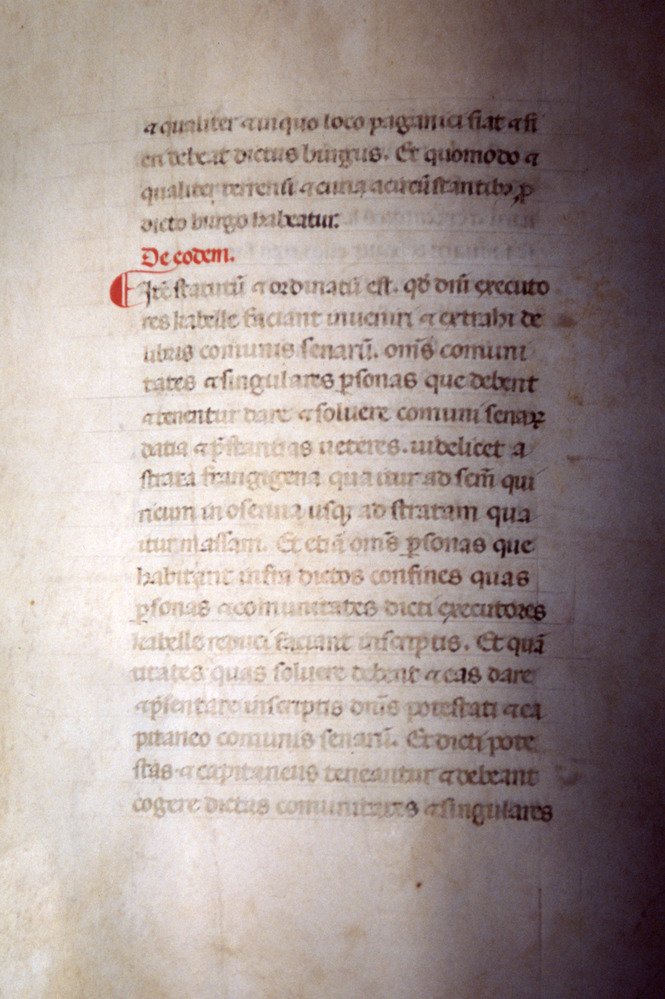 ⁊ qualiter ⁊ in quo loco paganici fiat ⁊ fi
eri debeat dictus burgus. Et quomodo ⁊
qualiter terrenū ⁊ curia ⁊ circūstantibꝫ ꝑ
dicto burgo habeatur.
De eodem.
Itē statutū ⁊ ordinatū est. qḋ dn̄i executo
res kabelle faciant inueniri ⁊ extrahi de
libris comunis senarū. om̄s comuni
tates ⁊ singulares ꝑsonas que debent
⁊ tenentur dare ⁊ soluere comuni senaꝝ
datia ⁊ p̄stantias ueteres. uidelicet a
strata frangigena qua itur ad sc̄m qui
ricum in osenna usqꝫ ad stratam qua
itur massam. Et etiā om̄s ꝑsonas que
habitant infra dictos confines quas
ꝑsonas ⁊ comunitates dicti executores
kabelle reduci faciant in scriptis. Et quā
titates quas soluere debent ⁊ eas dare
⁊ p̄sentare in scriptis dn̄is potestati ⁊ ca
pitaneo comunis senarū. Et dicti pote
stas ⁊ capitaneus teneantur ⁊ debeant
cogere dictas comunitates ⁊ singulares